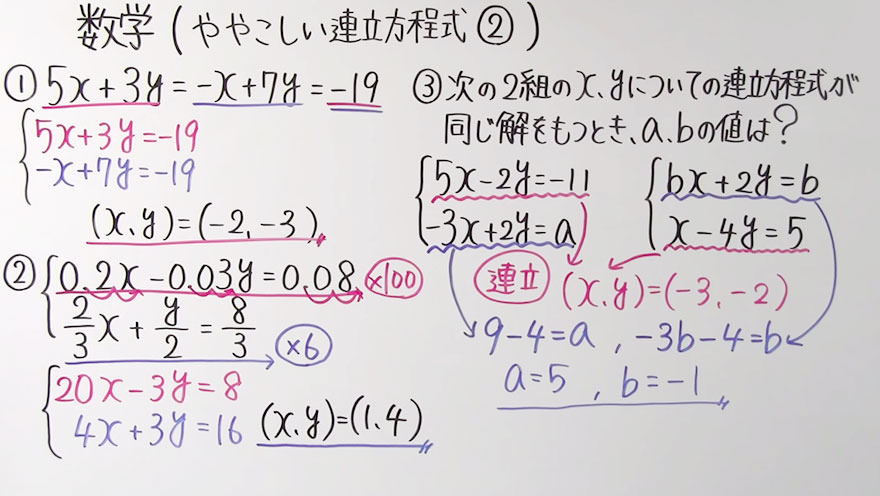 数学(ややこしい連立方程式②)
① 5x+3y=-x+7y=-19
5x+3y=-19
-x+7y=-19
(x、y)=(-2、-3)
② 0.2x-0.03y=0.08 ×100
2/3x+y/2=8/3 ×6
20x-3y=8
4x+3y=16 (x、y)=(1、4)
③次の2組のx、yについての連立方程式が
同じ解をもつとき、a、bの値は?
5x-2y=-11 bx+2y=b
-3x+2y=a x-4y=5
連立 (x、y)=(-3、-2)
9-4=a , -3b-4=b
a=5 , b=-1